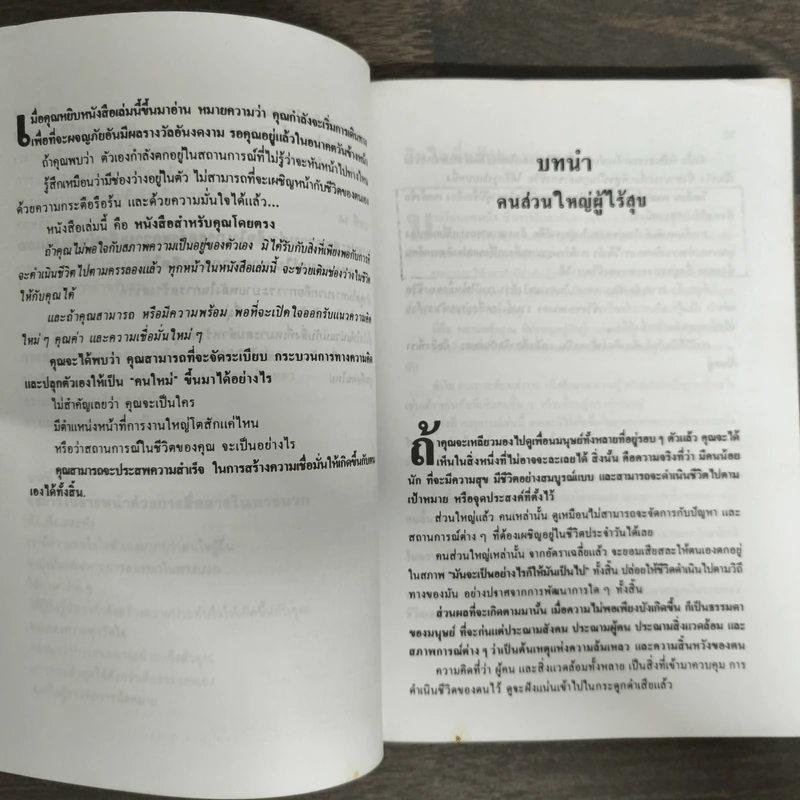 เมื่อคุณหยิบหนังสือเล่มนี้ขึ้นมาอ่าน หมายความว่า คุณกำลังจะเริ่มการเดินทาง
เพื่อที่จะผจญภัยอันมีผลรางวัลอันงดงาม รอคุณอยู่แล้วในอนาคตวันข้างหน้า
ถ้าคุณพบว่า ตัวเองกำลังตกอยู่ในสถานการณ์ที่ไม่รู้ว่าจะหันหน้าไปทางไหน
รู้สึกเหมือนว่ามีช่องว่างอยู่ในตัว ไม่สามารถที่จะเผชิญหน้ากับชีวิตของตนเอง
ด้วยความกระตือรือร้น และด้วยความมั่นใจได้แล้ว...
หนังสือเล่มนี้ คือ หนังสือสำหรับคุณโดยตรง
ถ้าคุณไม่พอใจกับสภาพความเป็นอยู่ของตัวเอง มิได้รับกับสิ่งที่เพียงพอกับการที่
จะดำเนินชีวิตไปตามครรลองแล้ว ทุกหน้าในหนังสือเล่มนี้ จะช่วยเติมช่องว่างในชีวิต
ให้กับคุณได้
และถ้าคุณสามารถ หรือมีความพร้อม พอที่จะเปิดใจออกรับแนวความคิด
ใหม่ ๆ คุณค่า และความเชื่อมั่นใหม่ ๆ
คุณจะได้พบว่า คุณสามารถที่จะจัดระเบียบ กระบวนการทางความคิด
และปลุกตัวเองให้เป็น "คนใหม่" ขึ้นมาได้อย่างไร
ไม่สำคัญเลยว่า คุณจะเป็นใคร
มีตำแหน่งหน้าที่การงานใหญ่โตสักแค่ไหน
หรือว่าสถานการณ์ในชีวิตของคุณ จะเป็นอย่างไร
คุณสามารถจะประสพความสำเร็จ ในการสร้างความเชื่อมั่นให้เกิดขึ้นกับตน
เองได้ทั้งสิ้น.
บทนำ
คนส่วนใหญ่ผู้ไร้สุข
ถ้าคุณจะเหลียวมองไปดูเพื่อนมนุษย์ทั้งหลายที่อยู่รอบ ๆ ตัวแล้ว คุณจะได้
เห็นในสิ่งหนึ่งที่ไม่อาจจะละเลยได้ สิ่งนั้น คือความจริงที่ว่า มีคนน้อย
นัก ที่จะมีความสุข มีชีวิตอย่างสมบูรณ์แบบ และสามารถจะดำเนินชีวิตไปตาม
เป้าหมาย หรือจุดประสงค์ที่ตั้งไว้
ส่วนใหญ่แล้ว คนเหล่านั้น ดูเหมือนไม่สามารถจะจัดการกับปัญหา และ
สถานการณ์ต่าง ๆ ที่ต้องเผชิญอยู่ในชีวิตประจำวันได้เลย
คนส่วนใหญ่เหล่านั้น จากอัตราเฉลี่ยแล้ว จะยอมเสียสละให้ตนเองตกอยู่
ในสภาพ "มันจะเป็นอย่างไรก็ให้มันเป็นไป" ทั้งสิ้น ปล่อยให้ชีวิตดำเนินไปตามวิถี
ทางของมัน อย่างปราศจากการพัฒนาการใด ๆ ทั้งสิ้น
ส่วนผลที่จะเกิดตามมานั้น เมื่อความไม่พอเพียงบังเกิดขึ้น ก็เป็นธรรมดา
ของมนุษย์ ที่จะก่นแต่ประณามสังคม ประณามผู้คน ประณามสิ่งแวดล้อม และ
สภาพการณ์ต่าง ๆ ว่าเป็นต้นเหตุแห่งความล้มเหลว และความสิ้นหวังของตน
ความคิดที่ว่า ผู้คน และสิ่งแวดล้อมทั้งหลาย เป็นสิ่งที่เข้ามาควบคุม การ
ดำเนินชีวิตของคนไว้ ดูจะฝังแน่นเข้าไปในกระดูกดำเสียแล้ว